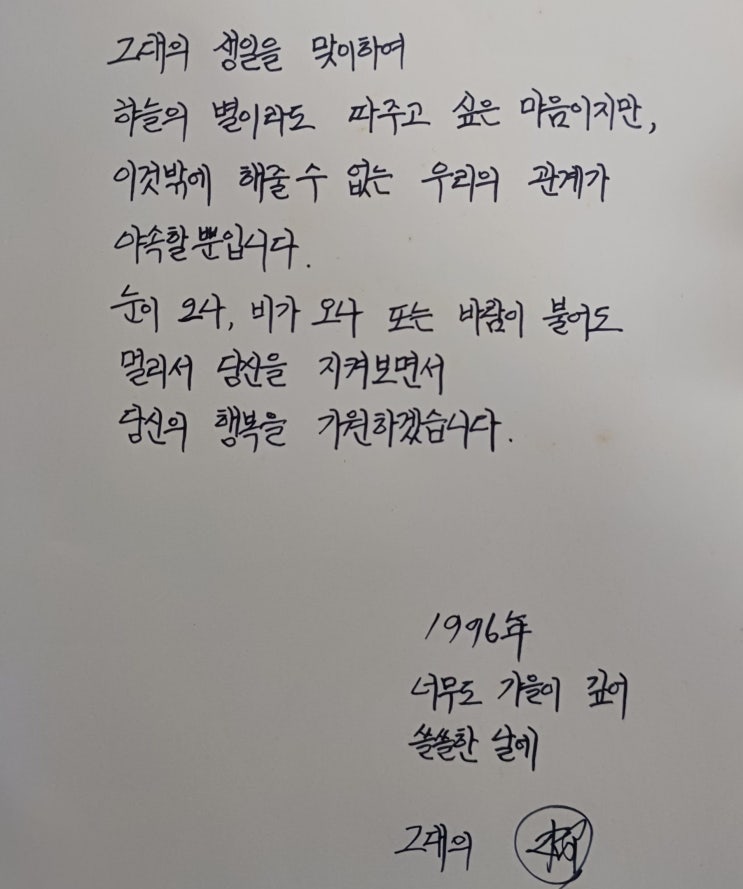 그대의 생일을 맞이하여
하늘의 별이라도 따주고 싶은 마음이지만,
이것밖에 해줄 수 없는 우리의 관계가
야속할 뿐입니다.
눈이 오나, 비가 오나 또는 바람이 불어도
멀리서 당신을 지켜보면서
당신의 행복을 기원하겠습니다.
1996年
너무도 가을이 깊어
쓸쓸한 날에
그대의